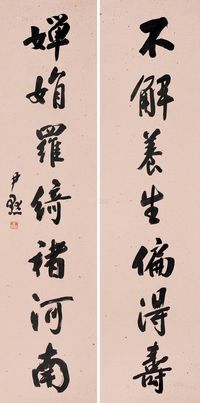 不解養生偏得壽
嬋娟羅綺褚河南
尹默